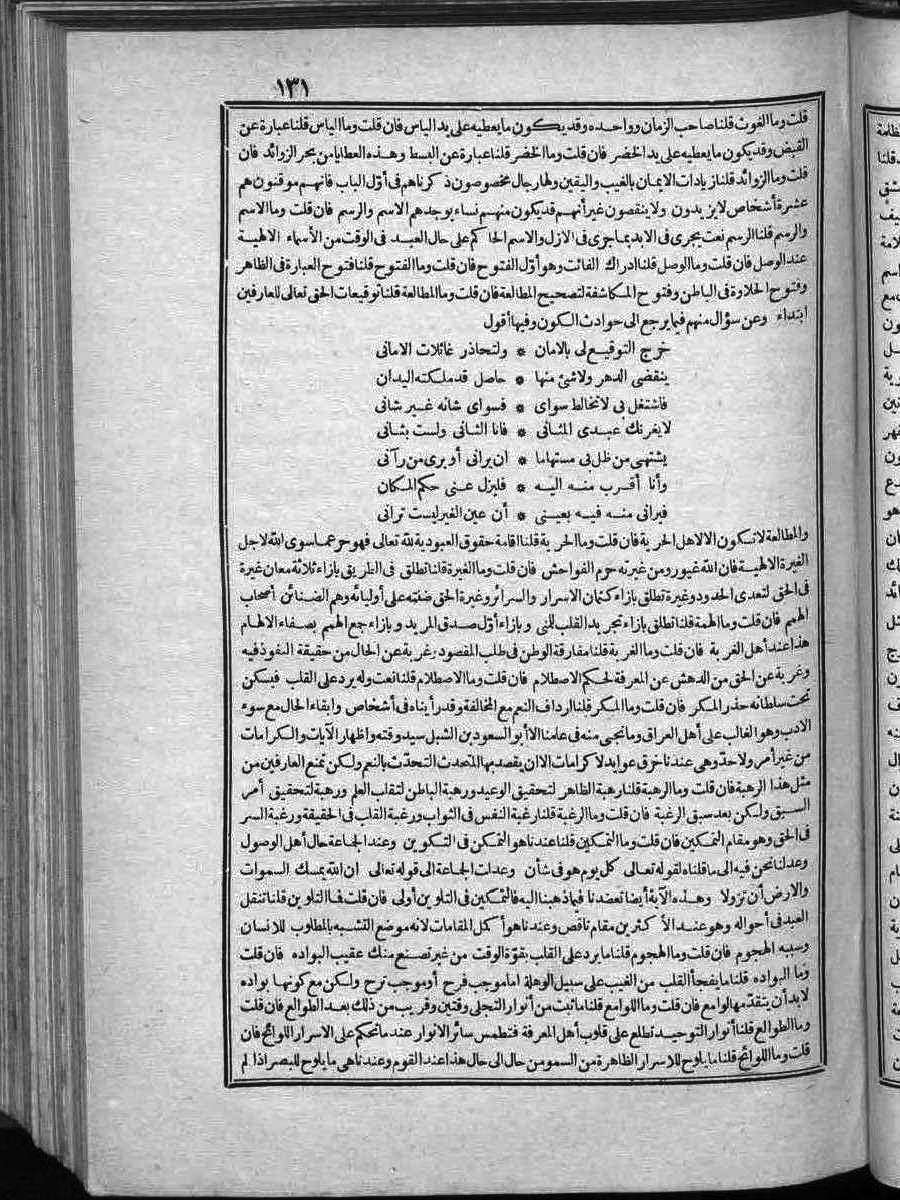 ١٣١
قلت وما الغوث قلنا صاحب الزمان وواحده وقد يكون ما يعطيه على يد الياس فان قلت وما الياس قلنا عبارة عن
القبض وقد يكون ما يعطيه على يد الخضر فان قلت وما الخضر قلنا عبارة عن البسط وهذه العطايا من بحر الزوائد فان
قلت وما الزوائد قلنا زيادات الايمان بالغيب واليقين ولها رجال مخصوصون ذكرناهم فى أوّل الباب فانهم موقنون هم
عشرة أشخاص لا يزيدون ولا ينقصون غير أنهم قد يكون منهم نساء يوجدهم الاسم والرسم فان قلت وما الاسم
والرسم قلنا الرسم نعت يجرى فى الابد بما جرى فى الازل والاسم الحاكم على حال العبد فى الوقت من الأسماء الالهية
عند الوصل فان قلت وما الوصل قلنا ادراك الفائت وهو أوّل الفتوح فان قلت وما الفتوح قلنا فتوح العبارة فى الظاهر
وفتوح الحلاوة فى الباطن وفتوح المكاشفة لتصحيح المطالعة فان قلت وما المطالعة قلنا توقيعات الحق تعالى للعارفين
ابتداء وعن سؤال منهم فيما يرجع الى حوادث الكون وفيها أقول
خرج التوقيع لى بالامان * ولتحاذر غائلات الامانى
ينقضى الدهر ولا شئ منها * حاصل قد ملكته اليدان
فاشتغل بى لا تخالط سواى * فسواى شانه غير شانى
لا يغرنك عبدى المثانى * فانا الثانى ولست بثانى
يشتهى من ظل بى مستهاما * ان يرانى أو يرى من رآنى
وأنا أقرب منه اليه * فليزل عنى حكم المكان
فيرانى منه فيه بعينى * أن عين الغير ليست ترانى
والمطالعة لا تكون الا لاهل الحرية فان قلت وما الحرية قلنا اقامة حقوق العبودية لله تعالى فهو حر عما سوى الله لاجل
الغيرة الالهية فان الله غيور ومن غيرته حرم الفواحش فان قلت وما الغيرة قلنا تطلق فى الطريق بازاء ثلاثة معان غيرة
فى الحق لتعدى الحدود وغيرة تطلق بازاء كتمان الاسرار والسرائر وغيرة الحق ضنته على أوليائه وهم الضنائن أصحاب
الهمم فان قلت وما الهمة قلنا تطلق بازاء تجريد القلب للمنى و بازاء أوّل صدق المريد و بازاء جمع الهمم بصفاء الالهام
هذا عند أهل الغربة فان قلت وما الغربة قلنا مفارقة الوطن فى طلب المقصود وغربة عن الحال من حقيقة النفوذ فيه
وغربة عن الحق من الدهش عن المعرفة لحكم الاصطلام فان قلت وما الاصطلام قلنا نعت وله يرد على القلب فيسكن
تحت سلطانه حذر المكر فان قلت وما المكر قلنا ارداف النعم مع المخالفة وقد رأيناه فى أشخاص وابقاء الحال مع سوء
الادب وهو الغالب على أهل العراق وما نجى منه فى عامنا الا أبو السعود بن الشبل سيد وقته واظهار الآيات والكرامات
من غير أمر ولا حدّ وهى عندنا خرق عوايد لا كرامات الا ان يقصد بها المتحدث التحدّث بالنعم ولكن تمنع العارفين من
مثل هذا الرهبة فان قلت وما الرهبة قلنا رهبة الظاهر لتحقيق الوعيد ورهبة الباطن لتقلب العلم ورهبة لتحقيق أمر
السبق ولكن بعد سبق الرغبة فان قلت وما الرغبة قلنا رغبة النفس فى الثواب ورغبة القلب فى الحقيقة ورغبة السر
فى الحق وهو مقام التمكين فان قلت وما التمكين قلنا عندنا هو التمكن فى التكوين وعند الجماعة حال أهل الوصول
وعدلنا نحن فيه الى ما قلناه لقوله تعالى كل يوم هو فى شأن وعدلت الجماعة الى قوله تعالى ان الله يمسك السموات
والارض أن تزولا وهذه الآية أيضا تعضدنا فيما ذهبنا اليه فالتمكين فى التلوين أولى فان قلت فما التلوين قلنا تنقل
العبد فى أحواله وهو عند الاكثرين مقام ناقص وعندنا هو أكمل المقامات لانه موضع التشبه بالمطلوب للانسان
وسببه الهجوم فان قلت وما الهجوم قلنا ما يرد على القلب بقوّة الوقت من غير تصنع منك عقيب البواده فان قلت
وما البواده قلنا ما يفجأ القلب من الغيب على سبيل الوهلة اما موجب فرح أو موجب ترح ولكن مع كونها بواده
لا بد أن يتقدّمها لوامع فان قلت وما اللوامع قلنا ما ثبت من أنوار التجلى وقتين وقريب من ذلك بعد الطوالع فان قلت
وما الطوالع قلنا أنوار التوحيد تطلع على قلوب أهل المعرفة فتطمس سائر الانوار عند ما تحكم على الاسرار اللوائح فان
قلت وما اللوائح قلنا ما يلوح للاسرار الظاهرة من السمو من حال الى حال هذا عند القوم وعندنا هى ما يلوح للبصر اذا لم